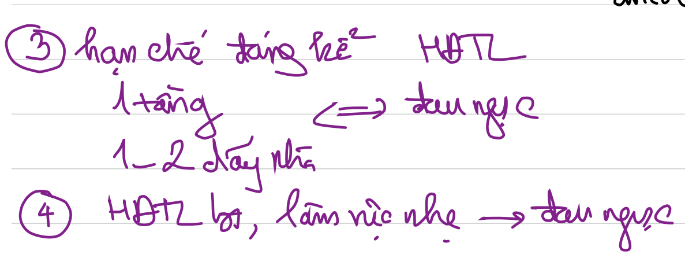 ③ hạn chế đáng kể HĐTL
1 tầng <=> đau ngực
1-2 dãy nhà
④ HĐTL bt, làm việc nhẹ → đau ngực